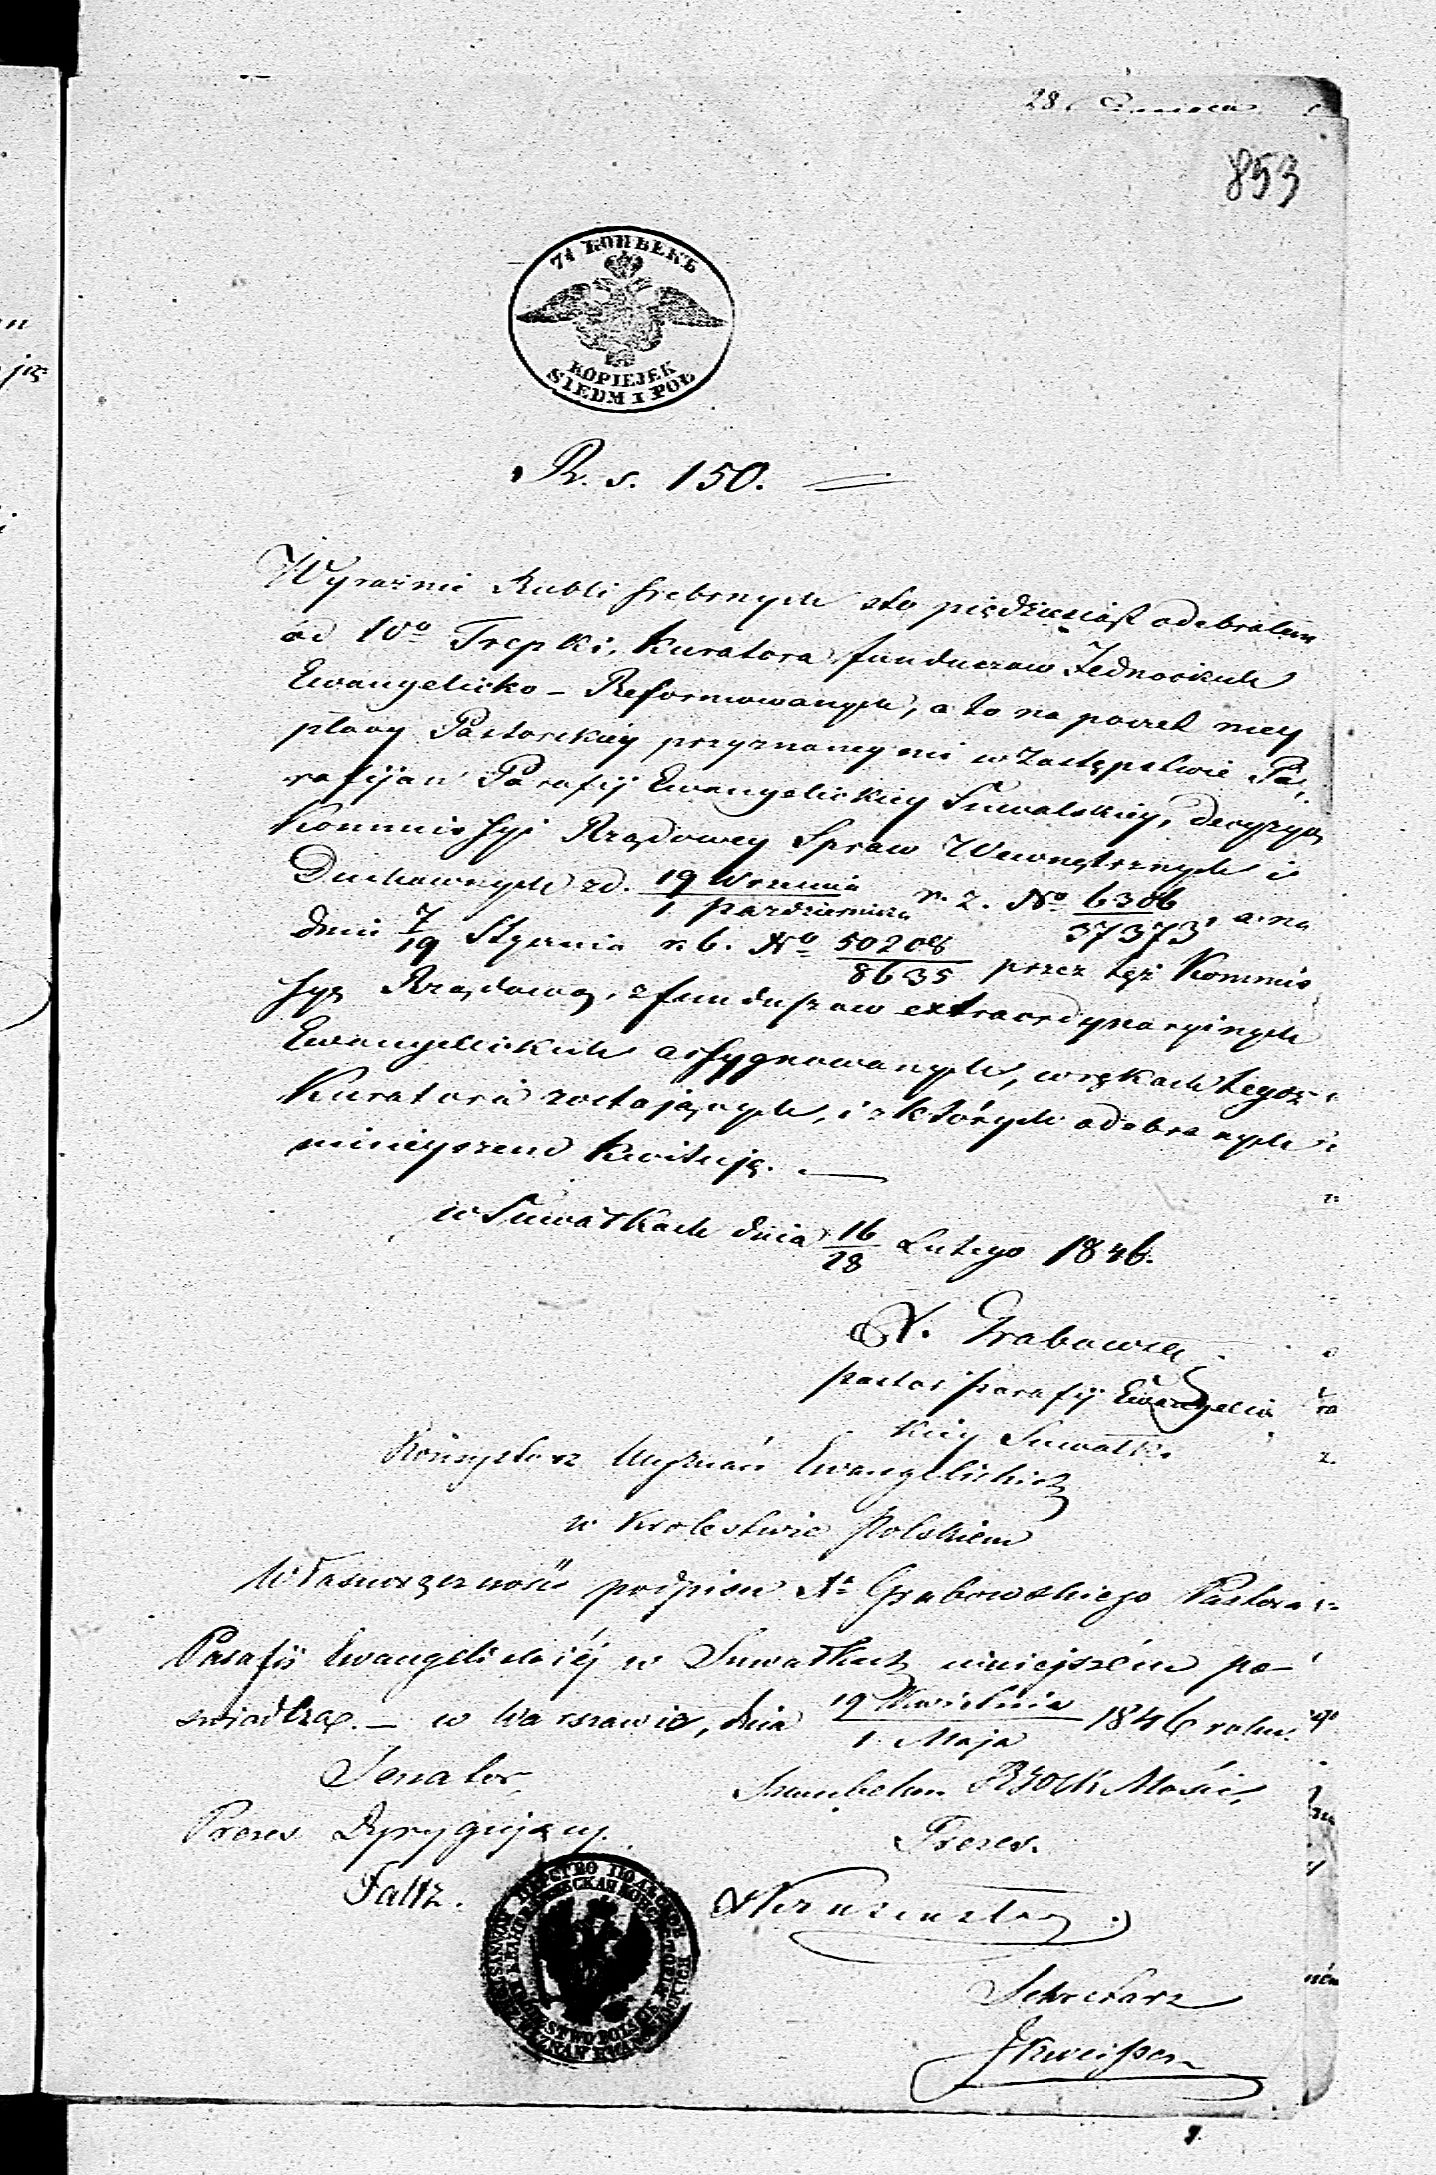 853
7½ КОПѢЕКЪ
KOPIEJEK
SIEDM I POŁ
R. s. 150.
Wyraźnie Rubli srebrnych sto pięćdziesiąt odebrałem
od Wo Trepki, Kuratora funduszow Jednockich
Ewangelicko-Reformowanych, a to na poczet mey
płacy Pastorskiey przyznaney mi w zastępstwie Pa-
rafijan Parafij Ewangelickiey Suwalskiey, decyzyą
Kommissyi Rządowey Spraw Wewnętrznych i
Duchownych zd. 19 Września / 1 Października r. z. No 6306 / 37373, a na
dniu 7/19 Stycznia r. b. No 50208 / 8635 przez tęż Kommis
syę Rządową, z funduszow extraordynaryinych
Ewangelickich assygnowanych, w rękach tegoż
Kuratora zostających, i z których odebranych
ninieyszem kwituję.
w Suwałkach dnia 16/28 Lutego 1846.
X. Grabowski
pastor parafij Ewangelic
kiey Suwałk.
Konsystorz Wyznań Ewangelickich
w Krolestwie Polskiem
Własnoręczność podpisu Xa Grabowskiego Pastora
Parafii Ewangelickiéj w Suwałkach niniejszém po-
świadcza. — w Warszawie, dnia 19 Kwietnia / 1 Maja 1846 roku.
Senator Szambelan Mości,
Prezes Dyrygujący. Prezes.
Faltz.
Sekretarz